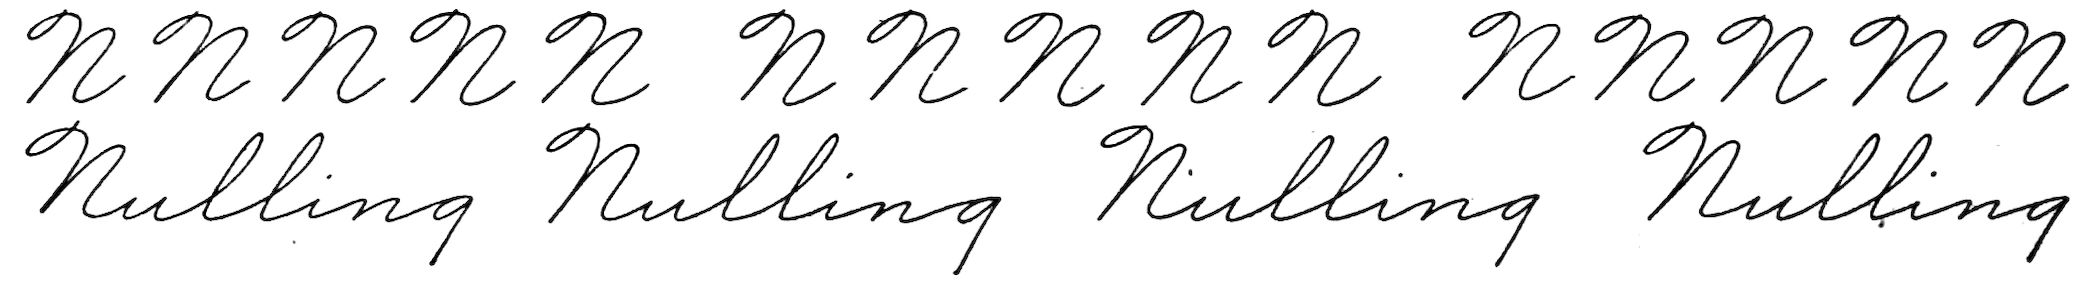 N N N N N N N N N N N N N N N
Nulling Nulling Nulling Nulling